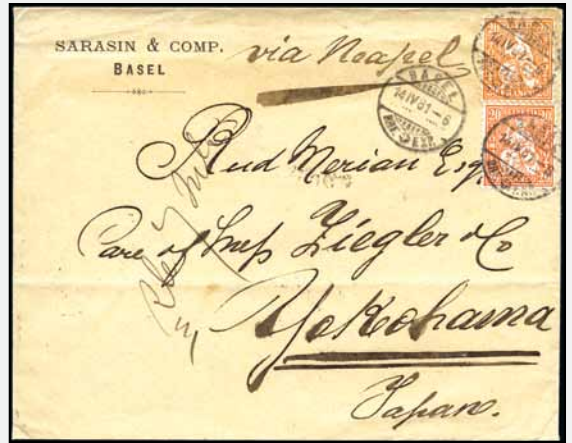 SARASIN & COMP.
BASEL
via Neapel
BASEL
14 IV 81 - 6
BRF. EXP.
20
Rud Merian Esq
Care of Mess Ziegler & Co
Yokohama
Japan.